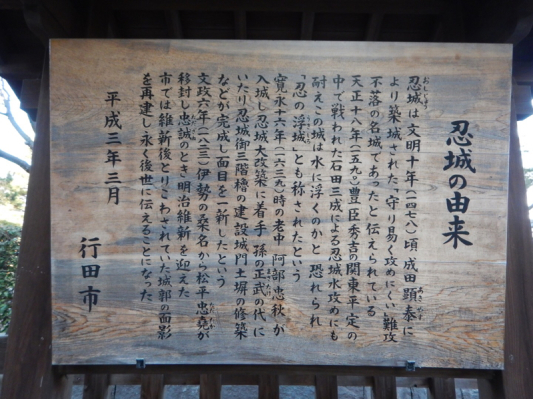 忍城の由来
忍城は文明十年(一四七八)頃、成田顕泰に
より築城された「守り易く攻めにくい」難攻
不落の名城であったと伝えられている
天正十八年(一五九〇)豊臣秀吉の関東平定の
中で戦われた石田三成による忍城水攻めにも
耐えこの城は水に浮くのかと恐れられ
「忍の浮城」とも称されたという
寛永十六年(一六三九)時の老中阿部忠秋が
入城し忍城大改築に着手、孫の正武の代に
いたり忍城御三階櫓の建設城門土塀の修築
などが完成し面目を一新したという
文政六年(一八二三)伊勢の桑名から松平忠堯が
移封し忠誠のとき明治維新を迎えた
市では維新後とりこわされていた城郭の面影
を再建し永く後世に伝えることになった
平成三年三月
行田市